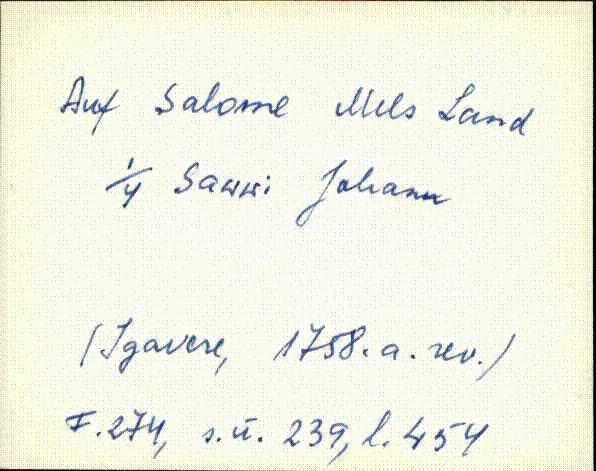 Auf Salome Mels Land
1/4 Sawwi Johann
(Igavere, 1758.a.rev.)
F.274, s.ü. 239, l. 454